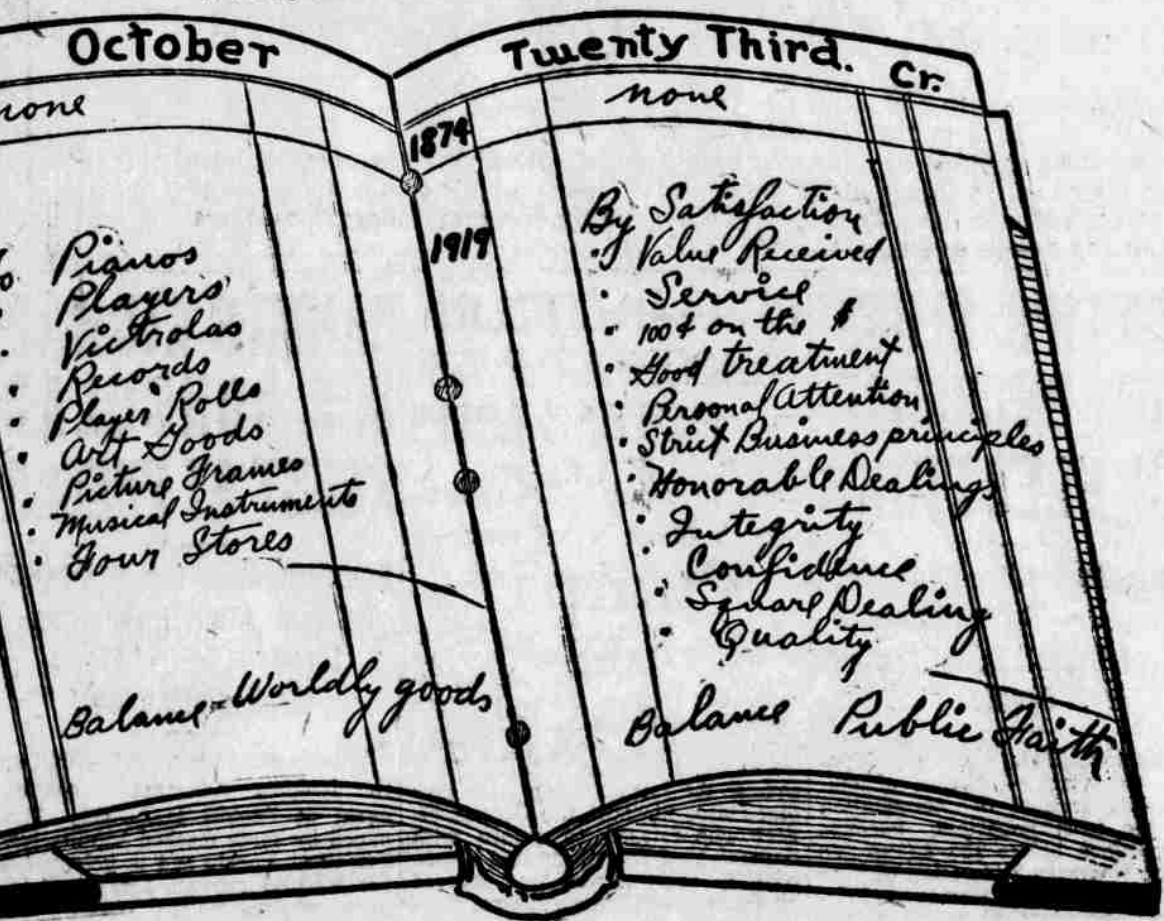 October
none
To Pianos
Players
Victrolas
Records
Player Rolls
Art Goods
Picture Frames
Musical Instruments
Four Stores
Balance - Worldly goods
1874
1919
Twenty Third. Cr.
none
By Satisfaction
" Value Received
" Service
" 100¢ on the $
" Good treatment
" Personal Attention
" Strict Business principles
" Honorable Dealings
" Integrity
" Confidence
" Square Dealing
" Quality
Balance Public Faith